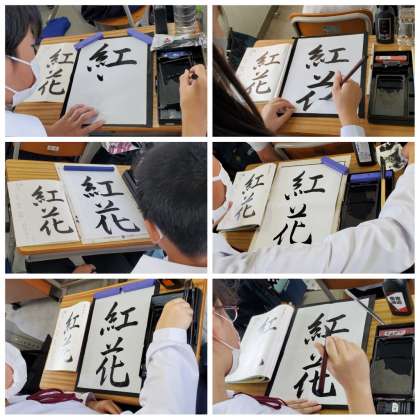 紅花
紅
紅花
紅花
紅花
紅花
紅花
紅花
紅花
紅花
紅花
紅
紅花